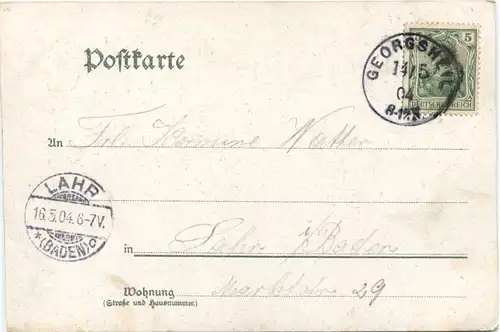 Postkarte
5
GEORGSHEI
14/5
04
8-12N
DEUTSCHES REICH
An Frl. Hermine Walter
LAHR
16.5.04.6-7V.
*(BADEN)a
in Lahr i/Baden
Wohnung Marktstr 29
(Straße und Hausnummer.)